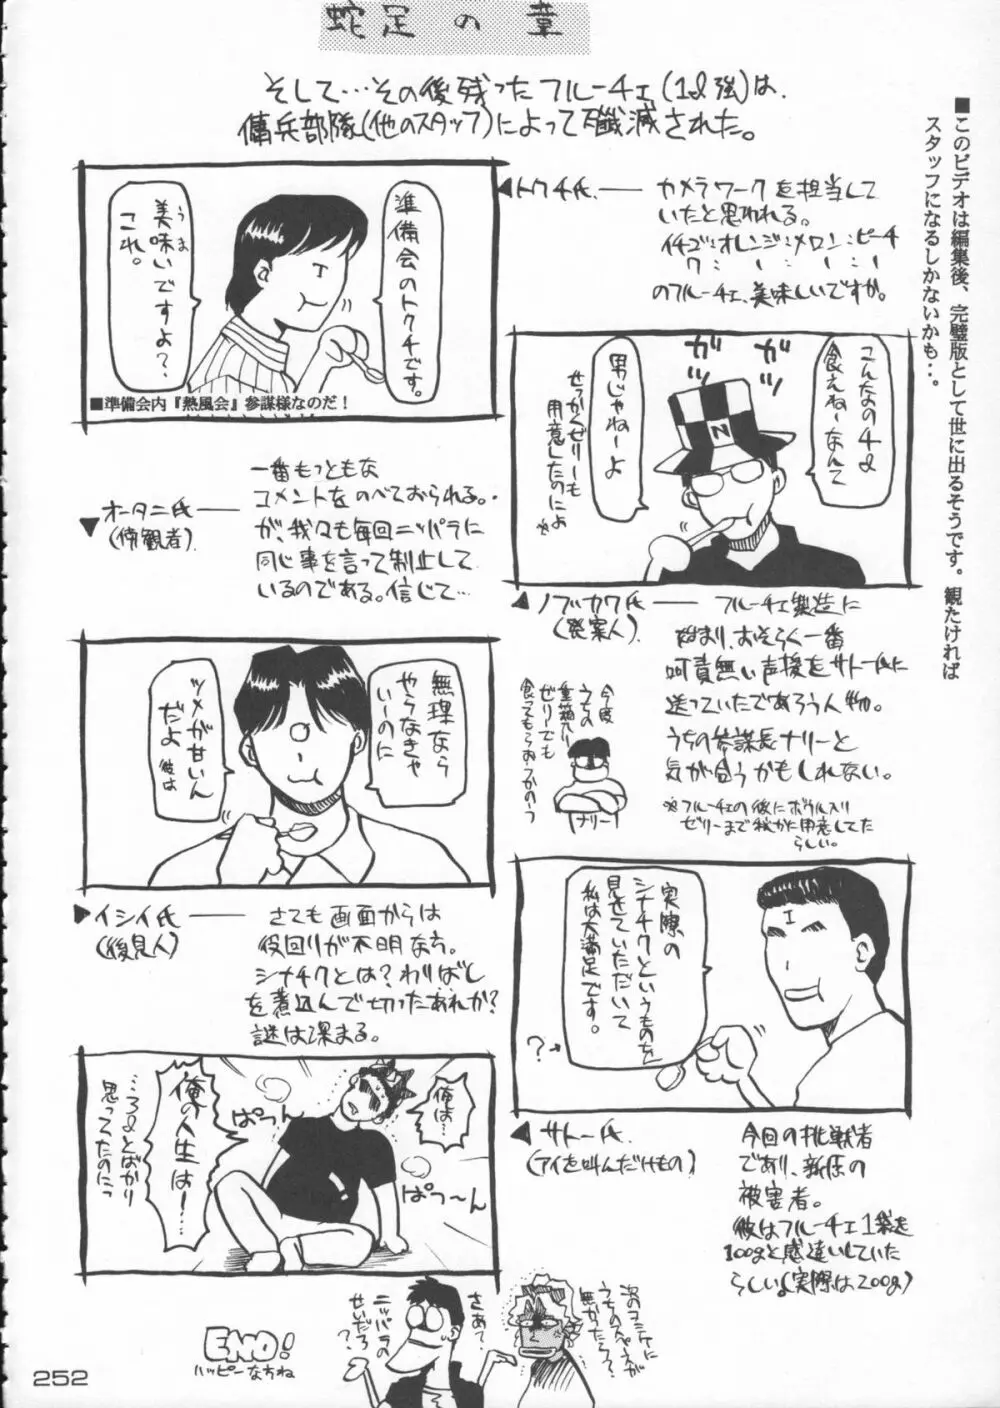 蛇足の章
そして…その後残ったフルーチェ(1ℓ強)は、
傭兵部隊(他のスタッフ)によって殲滅された。
■このビデオは編集後、完璧版として世に出るそうです。観たければ
スタッフになるしかないかも…。
準備会のトクチです。
美味いですよ?
うま
これ。
■準備会内『熱風会』参謀様なのだ!
◀トクチ氏. ── カメラワークを担当して
いたと思われる。
イチゴ:オレンジ:メロン:ピーチ
のフルーチェ、美味しいですか。
こんなの4ℓ
食えねーなんて
男じゃねーよ
ガッ
ガッ
せっかくゼリーも
用意したのによ
※
N
▲ノブカワ氏 ── フルーチェ製造に
(発案人).
始まり、おそらく一番
呵責無い声援をサトー氏に
送っていたであろう人物。
うちの参謀長ナリーと
気が合うかもしれない。
※フルーチェの後にボウル入り
ゼリーまで秘かに用意してた
らしい。
今度
うちの
重箱入り
ゼリーでも
食ってもらおうかのーっ
ナリー
▼オータニ氏 ──
(傍観者).
一番もっともな
コメントをのべておられる。
が、我々も毎回ニッパラに
同じ事を言って制止して
いるのである。信じて…
無理なら
やらなきゃ
いーのに
ツメが甘いん
だよ 彼は
▶イシイ氏 ── さても画面からは
(後見人)
役回りが不明な方。
シナチクとは?わりばし
を煮込んで切ったあれか?
謎は深まる。
実際の
シナチクというものを
見せていただいて
私は大満足です。
?
◀サトー氏.
(アイを叫んだけもの)
今回の挑戦者
であり、新たな
被害者。
彼はフルーチェ1袋を
100gと感違いしていた
らしい(実際は200g)
俺は…
俺の人生は!…
…3ℓとばかり
思ってたのにっ
ぱつーん
ぱつ〜ん
EMO!
ハッピーなちね
さあ?
ニッパラの
せいだろ?
次のコミケに
うちのスペースが
無かったら?…
252